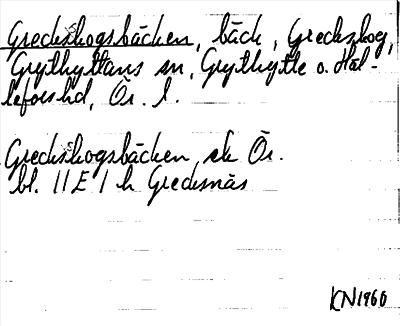 Greckskogsbäcken, bäck, Greckskog,
Grythyttans sn, Grythytte o. Häl-
lefors hd, Ör. l.
Greckskogsbäcken, ek Ör.
bl. 11E 1 h Grecksnäs
KN1966